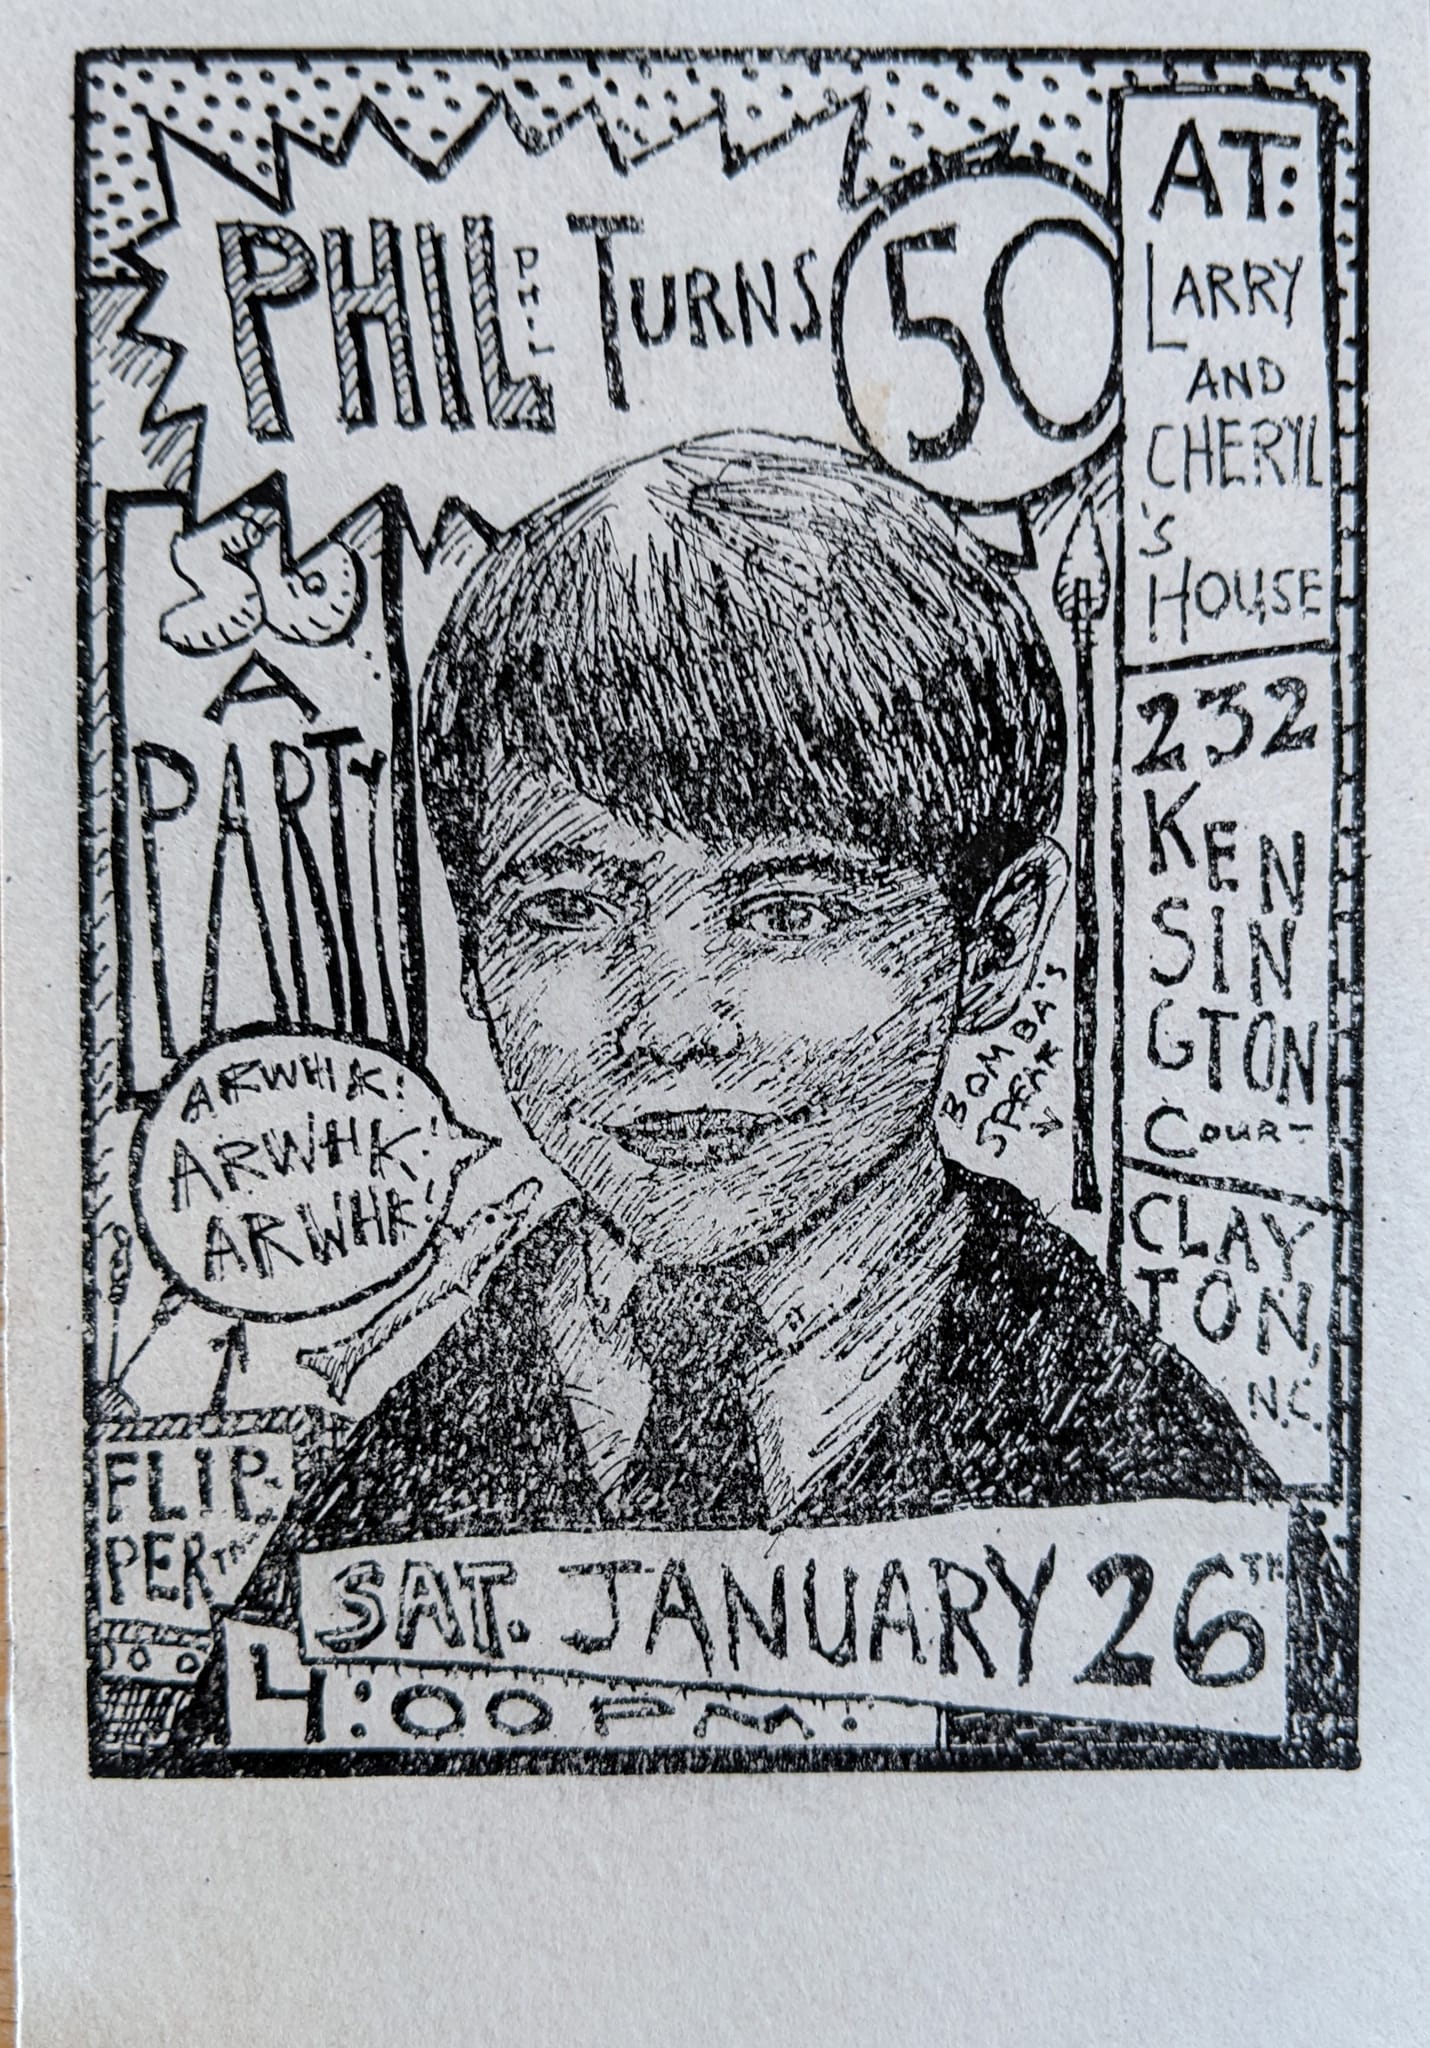 PHIL
PHIL
TURNS
50
AT:
LARRY
AND
CHERYL
'S
HOUSE
232
KEN
SIN
GTON
COURT
CLAY
TON,
N.C.
50
A
PARTY
ARWHK!
ARWHK!
ARWHK!
BOMBA'S
SPEAR
FLIP-
PER
SAT. JANUARY 26TH
4:00 PM.